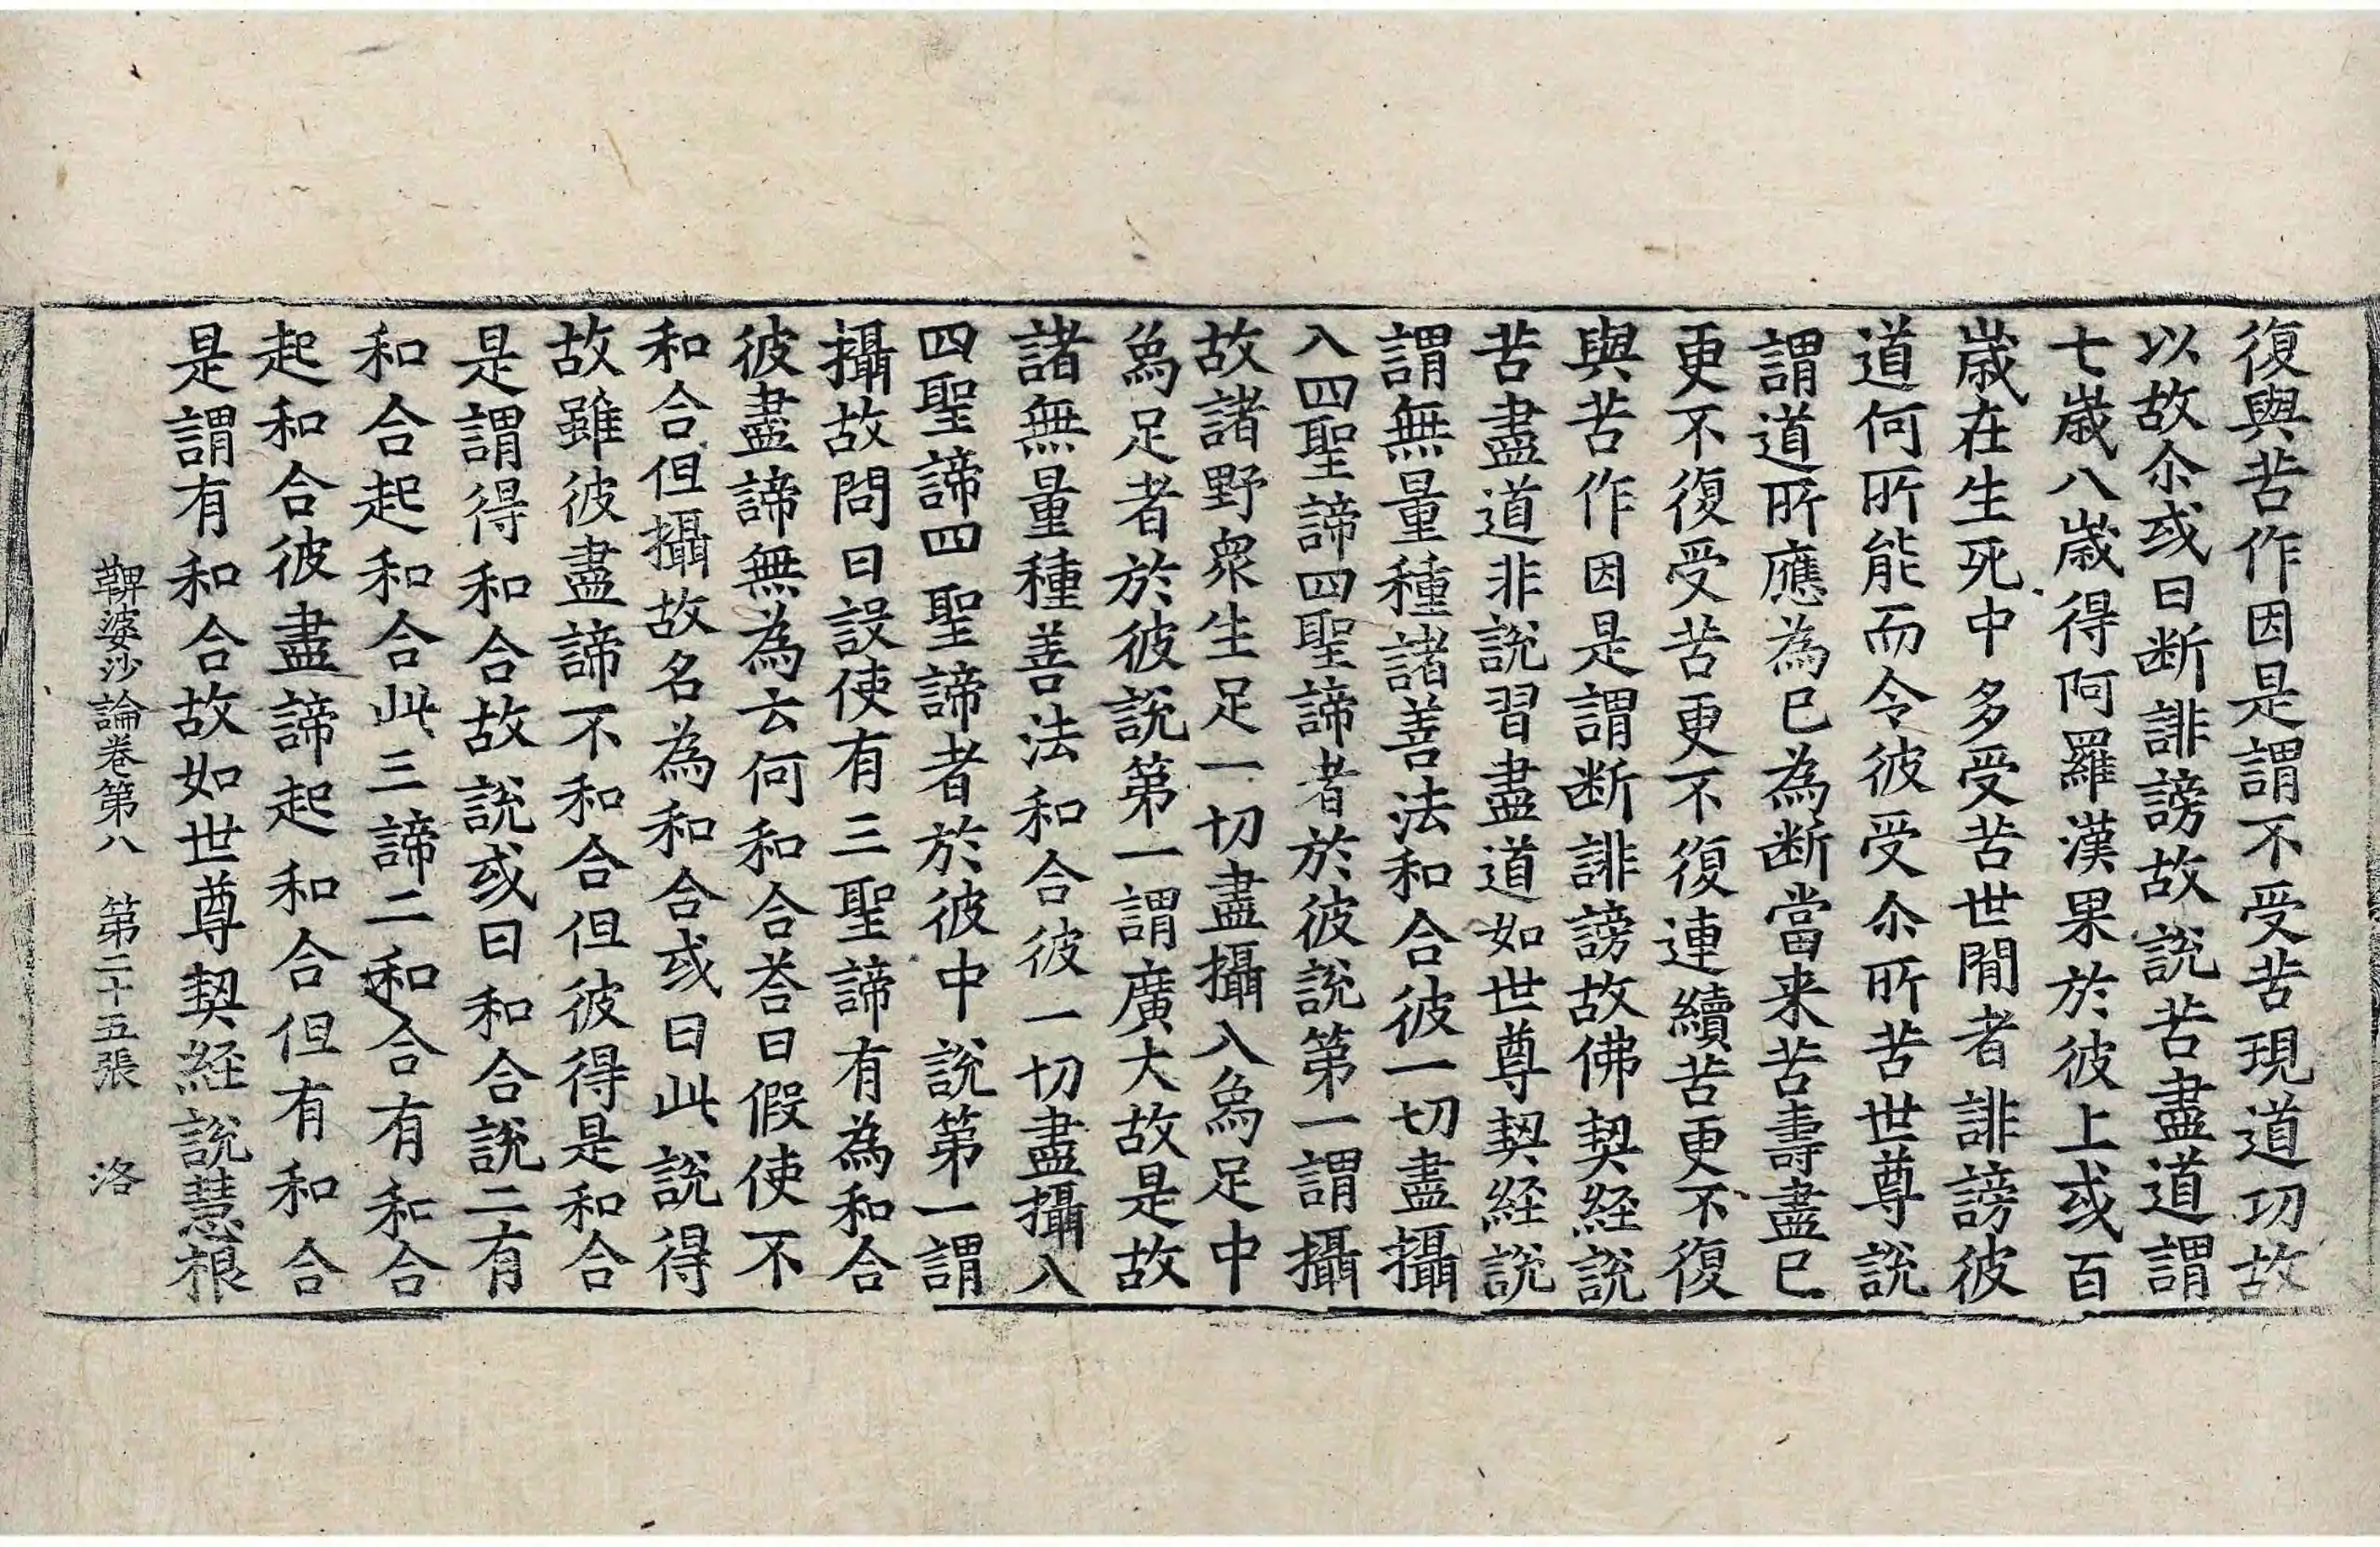 復與苦作因是謂不受苦現道功故
以故尒或曰断誹謗故說苦盡道謂
七歳八歳得阿羅漢果於彼上或百
歳在生死中多受苦世閒者誹謗彼
道何所能而令彼受尒所苦世尊說
謂道所應為已為断當来苦壽盡已
更不復受苦更不復連續苦更不復
與苦作因是謂断誹謗故佛契経說
苦盡道非說習盡道如世尊契経說
謂無量種諸善法和合彼一切盡攝
入四聖諦四聖諦者於彼說第一謂攝
故諸野衆生足一切盡攝入爲足中
爲足者於彼說第一謂廣大故是故
諸無量種善法和合彼一切盡攝入
四聖諦四聖諦者於彼中說第一謂
攝故問曰設使有三聖諦有為和合
彼盡諦無為云何和合荅曰假使不
和合但攝故名為和合或曰此說得
故雖彼盡諦不和合但彼得是和合
是謂得和合故說或曰和合說二有
和合起和合此三諦二和合有和合
起和合彼盡諦起和合但有和合
是謂有和合故如世尊契経說慧根
鞞婆沙論卷第八　第二十五張　洛